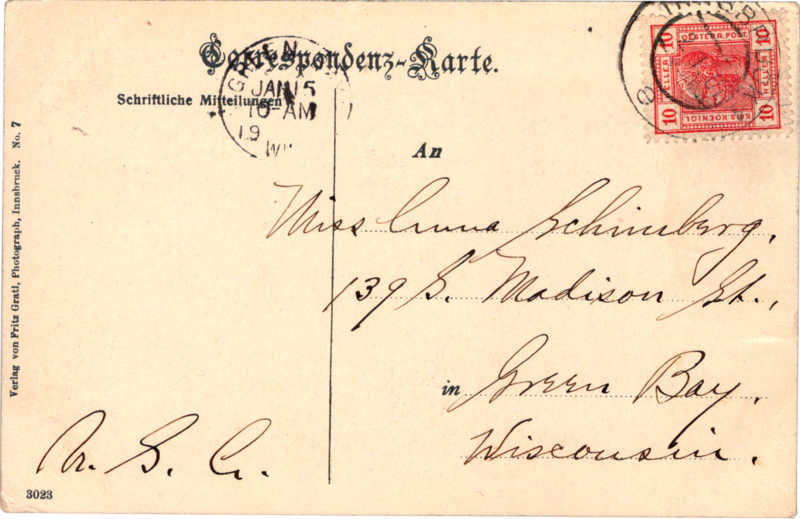 Correspondenz-Karte.
Schriftliche Mitteilungen
GREEN
JAN 15
10-AM
19
WIS
10 10
OESTERR. POST
HELLER HELLER
KAIS. KOENIGL.
10 10
An
Miss Anna Schimberg,
139 S. Madison St.,
in Green Bay,
Wisconsin.
U. S. A.
Verlag von Fritz Gratl, Photograph, Innsbruck. No. 7
3023